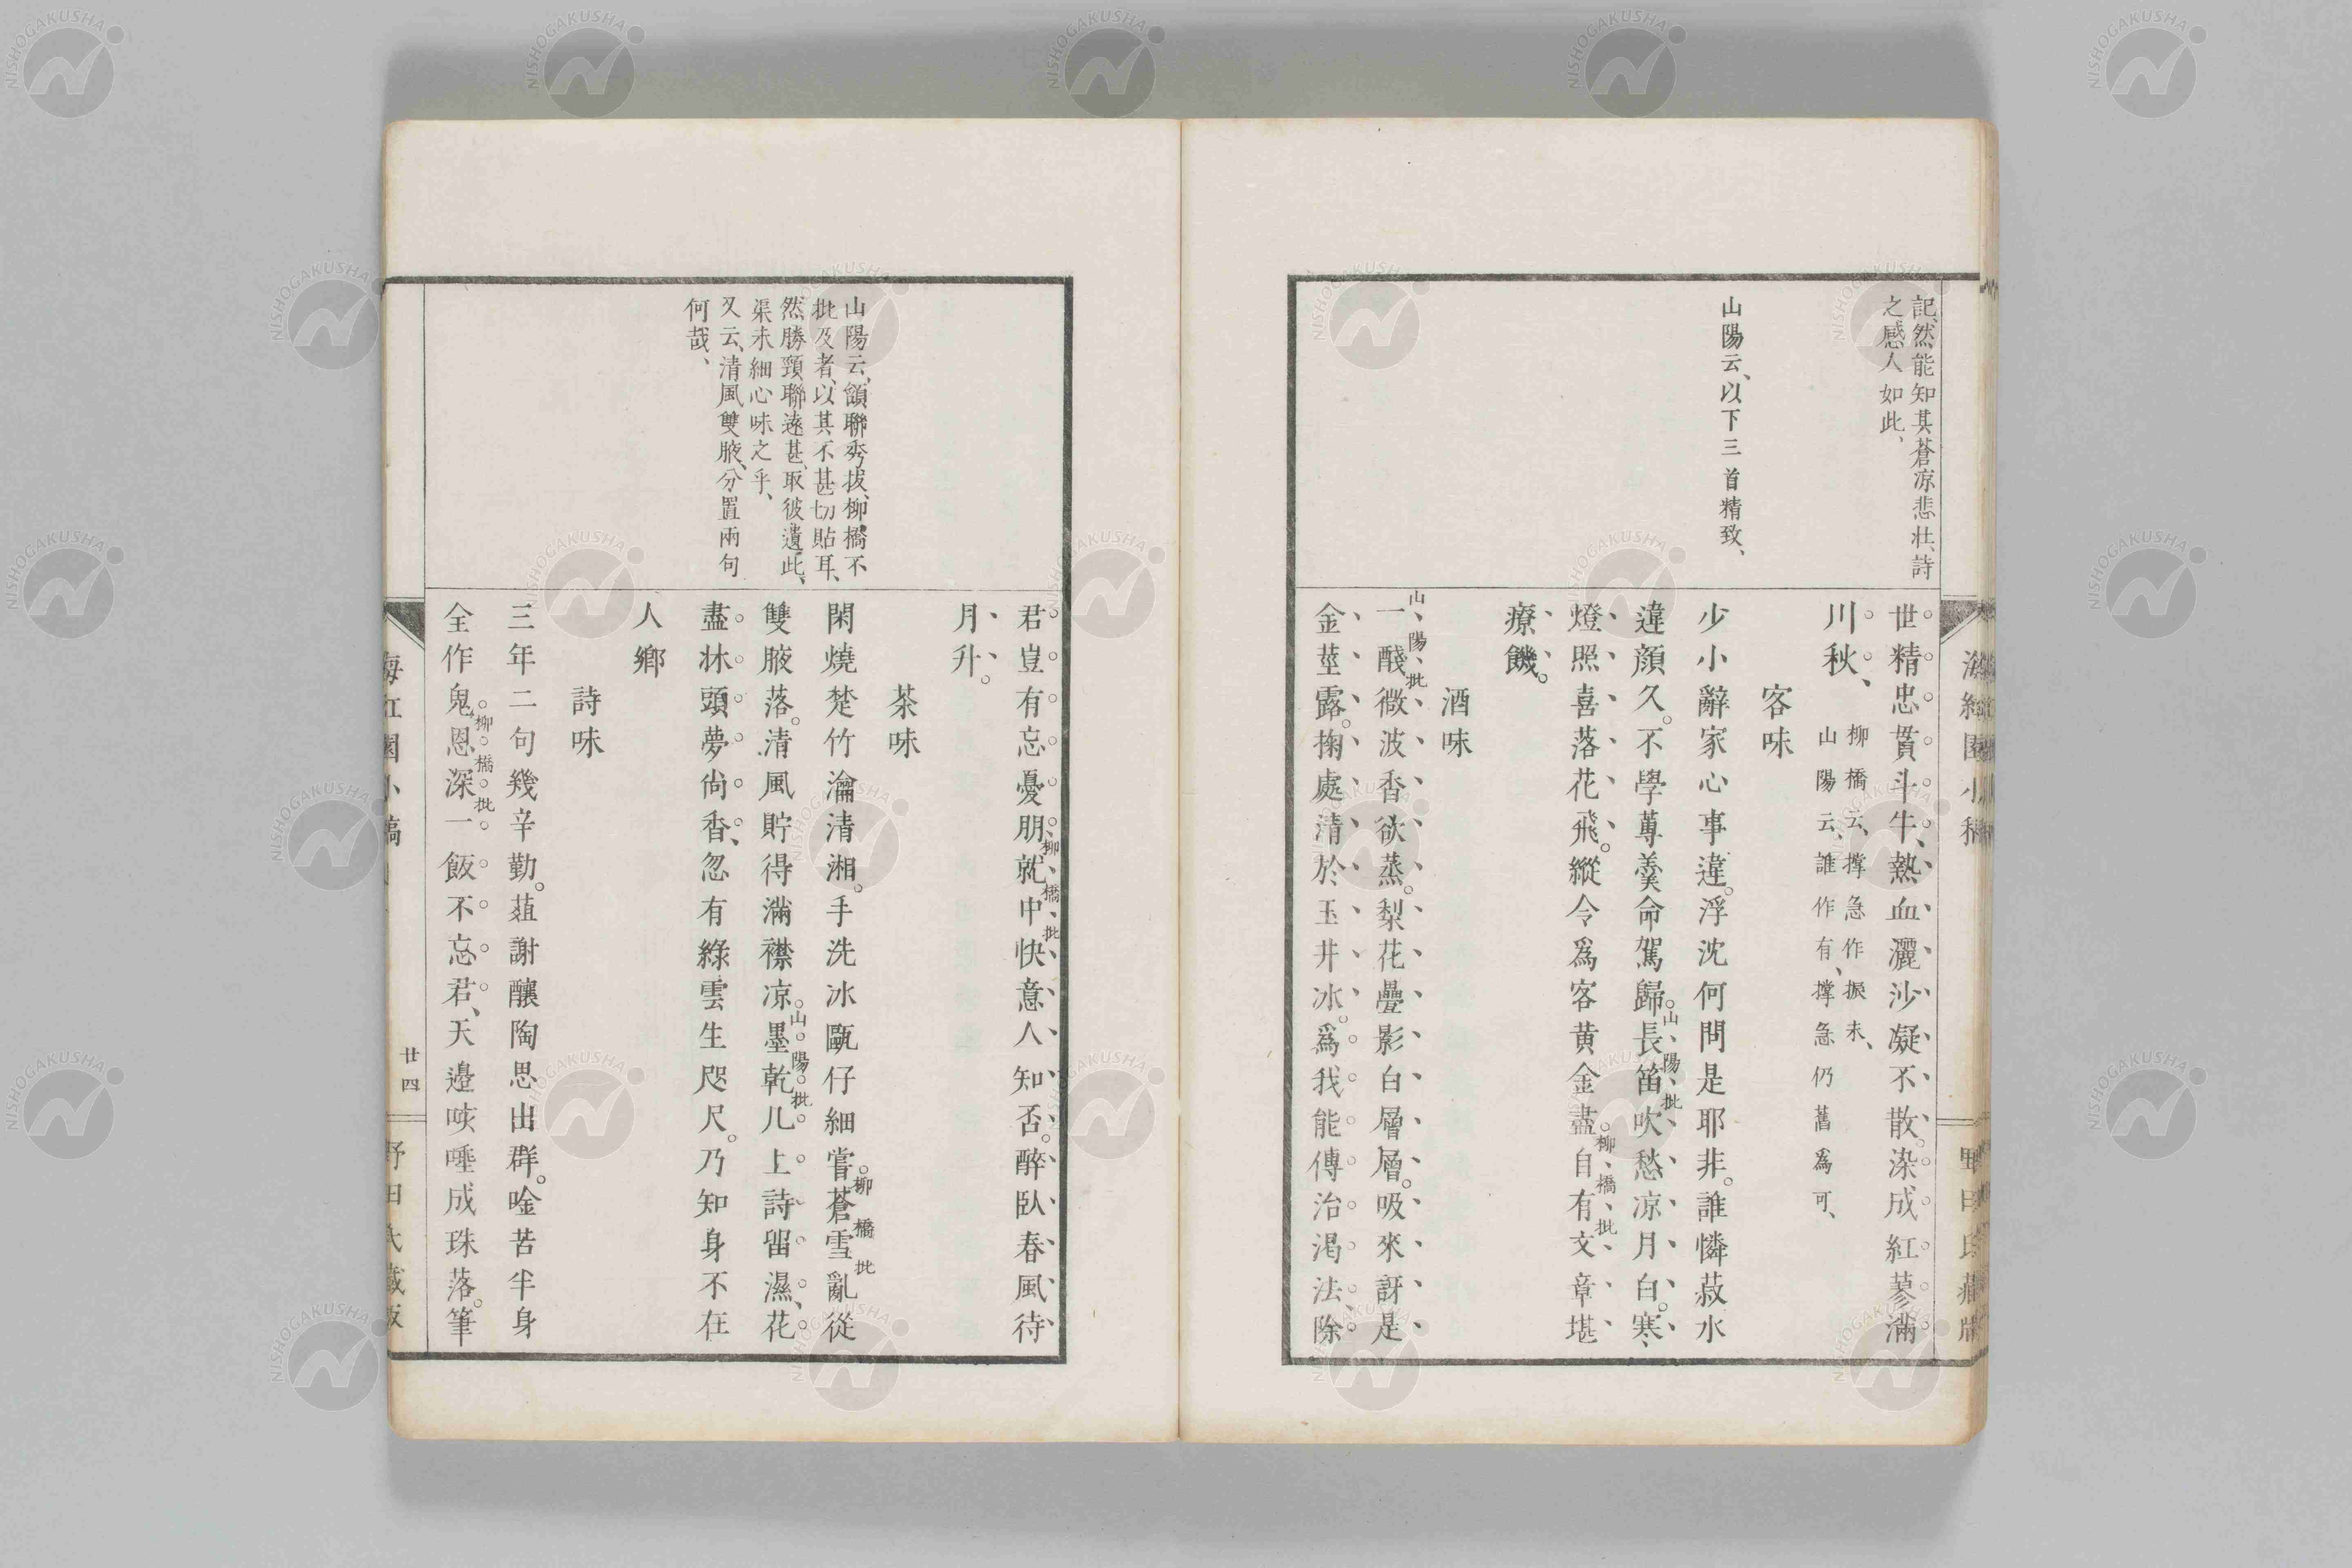 記、然能知其蒼凉悲壯、詩
之感人如此、
山陽云、以下三首精致、
世精忠貫斗牛、熱血灑沙凝不散。染成紅蓼滿
川秋、
柳橋云、撑急作振未、
山陽云、誰作有、撑急仍舊爲可、
客味
少小辭家心事違。浮沈何問是耶非。誰憐菽水
違顔久。不學蓴羮命駕歸。長笛吹愁凉月白。寒
山陽批
燈照喜落花飛。縱令爲客黄金盡。自有文章堪
柳橋批
療饑。
酒味
一醆微波香欲蒸。梨花疊影白層層。吸來訝是
山陽批
金莖露。掬處清於玉井冰。爲我能傳治渴法、除
海紅園小稿
野田氏藏版
山陽云、頷聯秀拔、柳橋不
批及者、以其不甚切貼耳、
然勝頸聯遠甚、取彼遺此、
渠未細心味之乎、
又云、清風雙腋、分置兩句
何哉、
君豈有忘憂朋、就中快意人知否。醉臥春風待
柳橋批
月升。
茶味
閑燒楚竹瀹清湘。手洗冰甌仔細嘗。蒼雪亂從
柳橋批
雙腋落。清風貯得滿襟凉。墨乾几上詩留濕、花
山陽批
盡牀頭夢尙香、忽有綠雲生咫尺。乃知身不在
人鄉
詩味
三年二句幾辛勤。葅謝釀陶思出群。唫苦半身
全作鬼。恩深一飯不忘君、天邉咳唾成珠落。筆
柳橋批
海紅園小稿
廿四
野田氏藏版